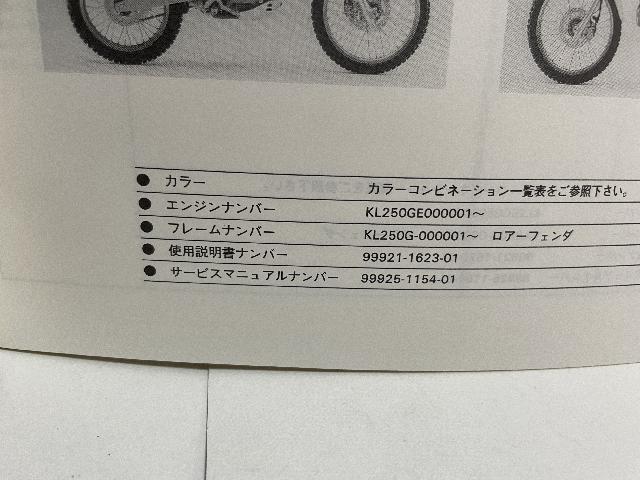 ● カラー カラーコンビネーション一覧表をご参照下さい。
● エンジンナンバー KL250GE000001〜
● フレームナンバー KL250G-000001〜 ロアーフェンダ
● 使用説明書ナンバー 99921-1623-01
● サービスマニュアルナンバー 99925-1154-01